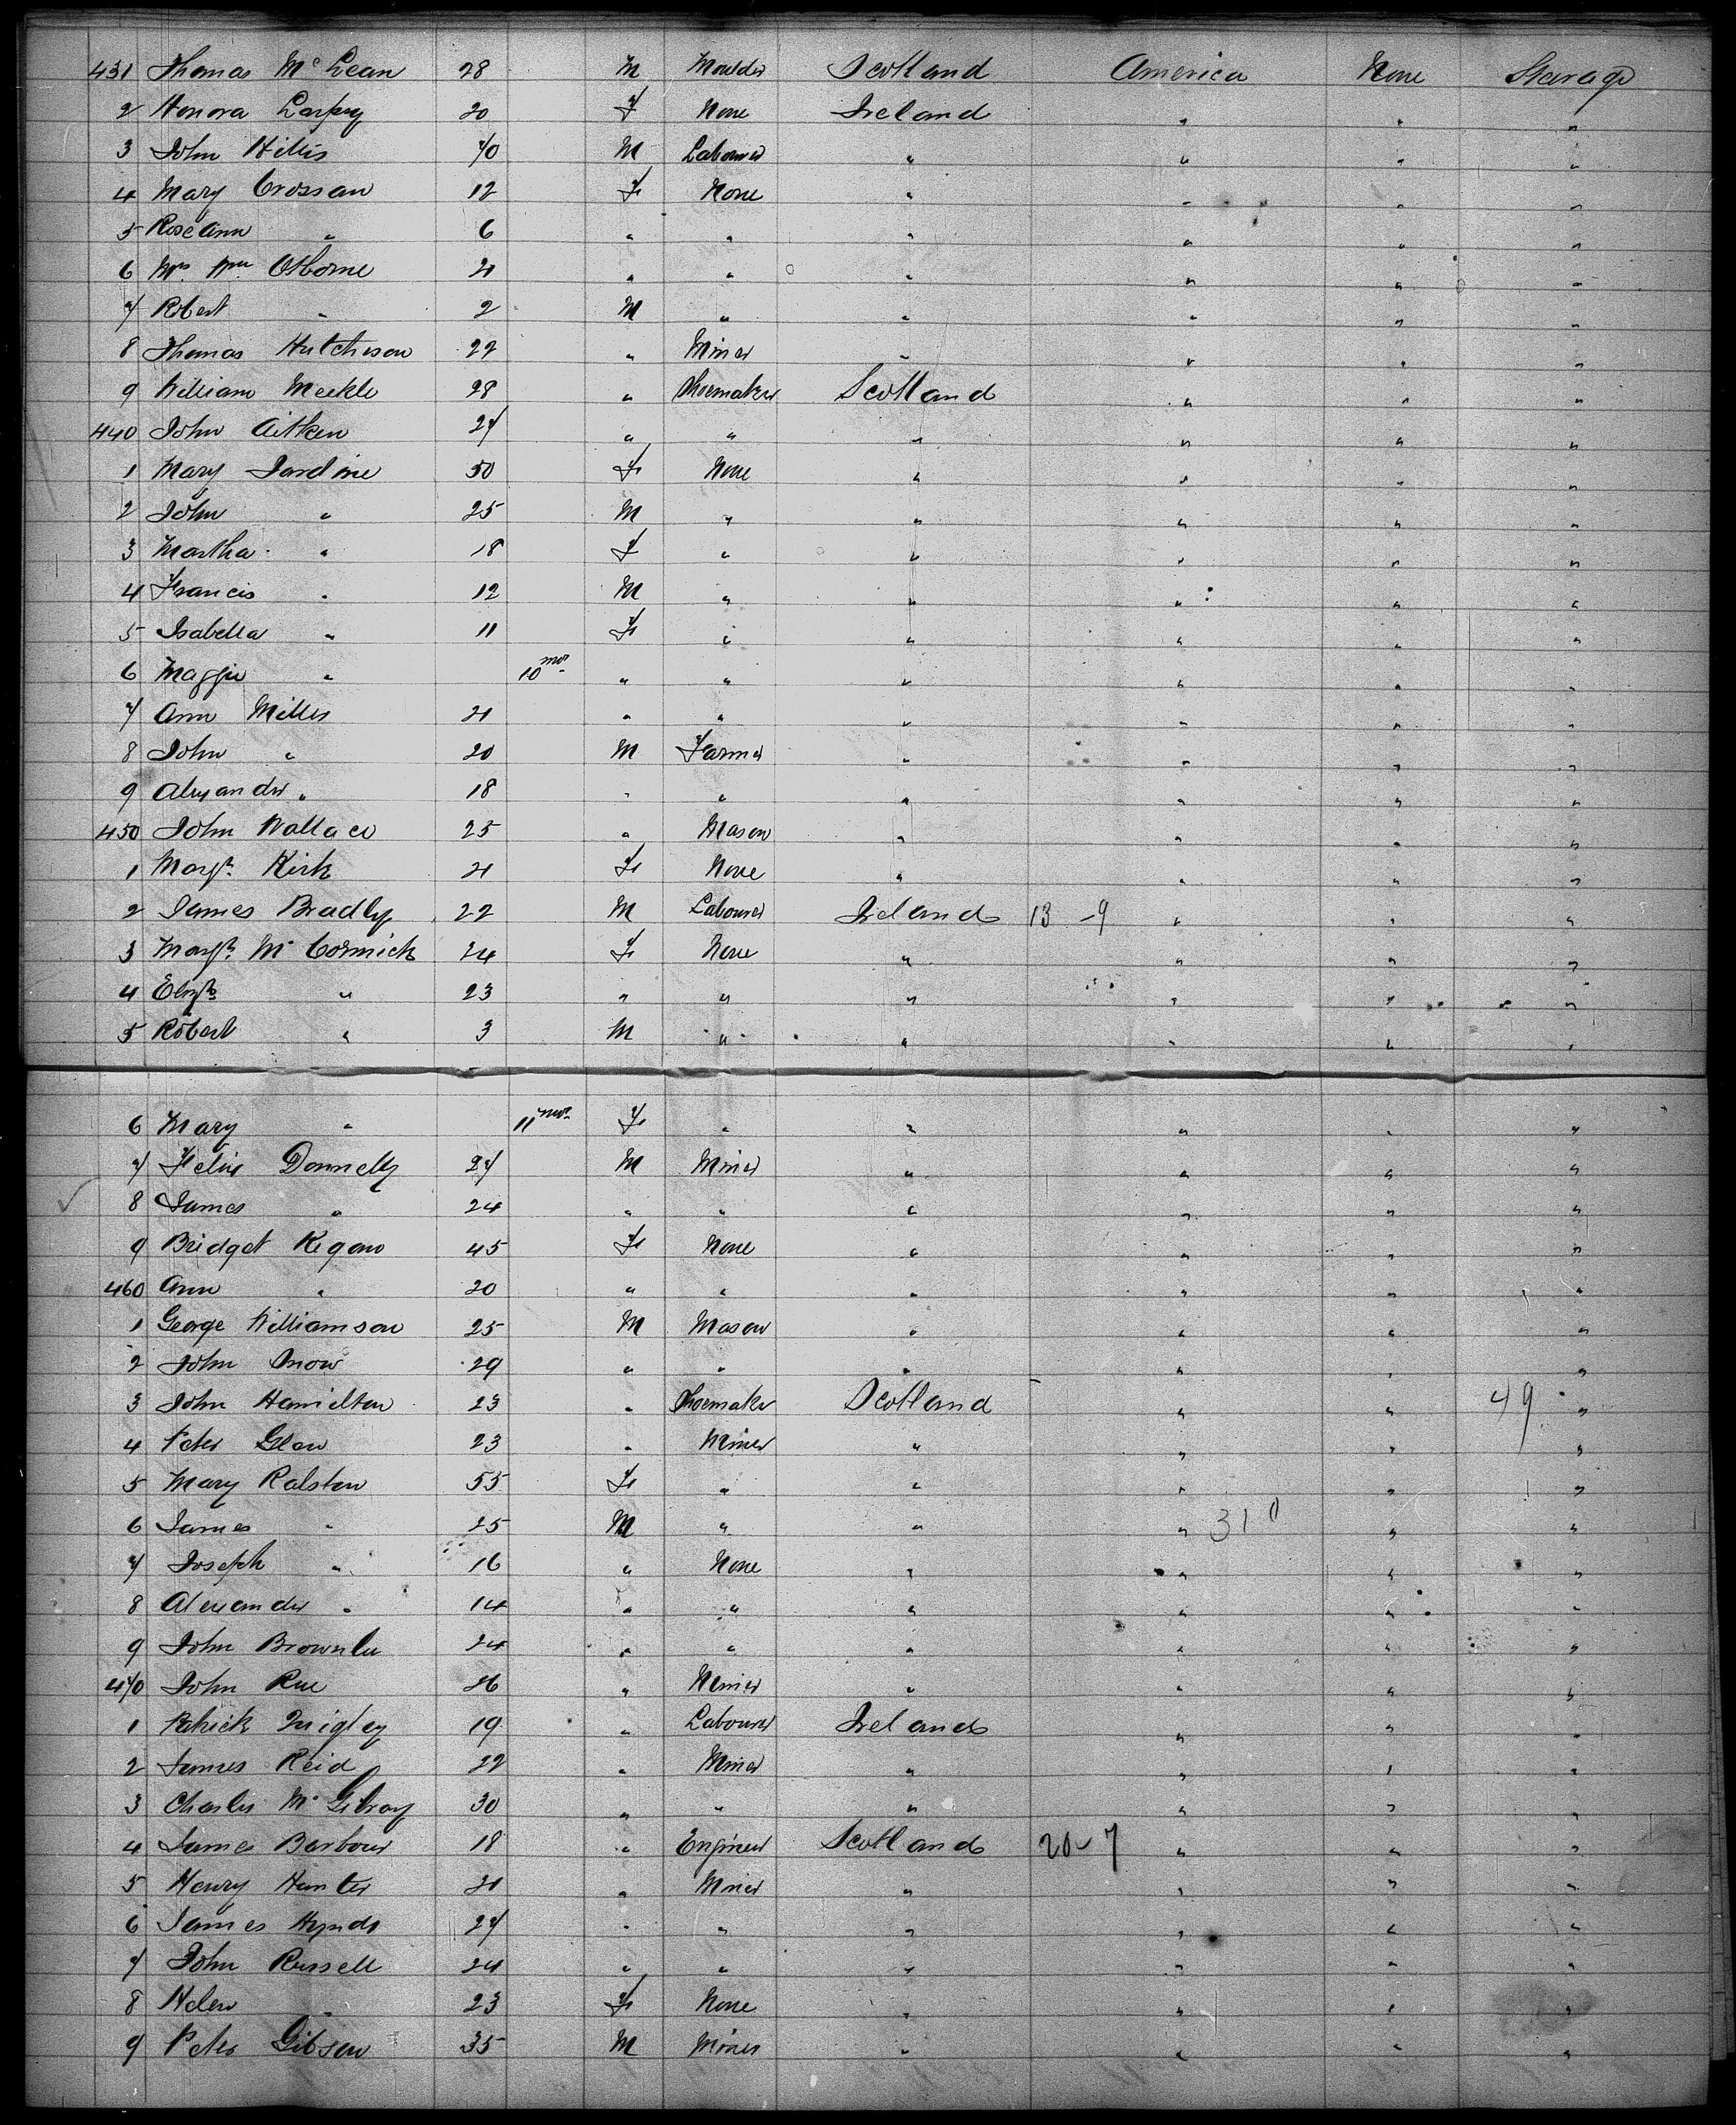 431 Thomas McLean 28 M Moulder Scotland America None Stearage
2 Honora 20 F None Ireland " " "
3 John Hillis 40 M Labourer " " " "
4 Mary Crossan 12 F None " " " "
5 Rose Ann " 6 " " " " " "
6 Mrs Wm Osborne 21 " " " " " "
7 Robert " 2 M " " " " "
8 Thomas Hutcheson 22 " Miner " " " "
9 William Meekle 28 " Shoemaker Scotland " " "
440 John Aitken 27 " " " " " "
1 Mary Jardine 50 F None " " " "
2 John " 25 M " " " " "
3 Martha " 18 F " " " " "
4 Francis " 12 M " " " " "
5 Isabella " 11 F " " " " "
6 Maggie " 10 mos " " " " " "
7 Ann Miller 21 " " " " " "
8 John " 20 M Farmer " " " "
9 Alexander " 18 " " " " " "
450 John Wallace 25 " Mason " " " "
1 Margt Kirk 21 F None " " " "
2 James Bradly 22 M Labourer Ireland 13 - 9 " " "
3 Margt McCormick 24 F None " " " "
4 Elizth " 23 " " " " " "
5 Robert " 3 M " " " " "
6 Mary " 11 mos F " " " " "
7 Felix Donnelly 27 M Miner " " " "
8 James " 24 " " " " " "
9 Bridget Regan 45 F None " " " "
460 Ann " 20 " " " " " "
1 George Williamson 25 M Mason " " " "
2 John Snow 29 " " " " " "
3 John Hamilton 23 " Shoemaker Scotland " " 49 "
4 Peter Glen 23 " Miner " " " "
5 Mary Ralston 55 F " " " " "
6 James " 25 M " " " 310 " "
7 Joseph " 16 " None " " " "
8 Alexander " 14 " " " " " "
9 John Brownlee 24 " " " " " "
470 John Rae 26 " Miner " " " "
1 Patrick Quigley 19 " Labourer Ireland " " "
2 James Reid 22 " Miner " " " "
3 Charles McGilvray 30 " " " " " "
4 James Barbour 18 " Engineer Scotland 20-7 " " "
5 Henry Hunter 21 " Miner " " " "
6 James Hynds 27 " " " " " "
7 John Russell 24 " " " " " "
8 Helen " 23 F None " " " "
9 Peter Gibson 35 M Miner " " " "